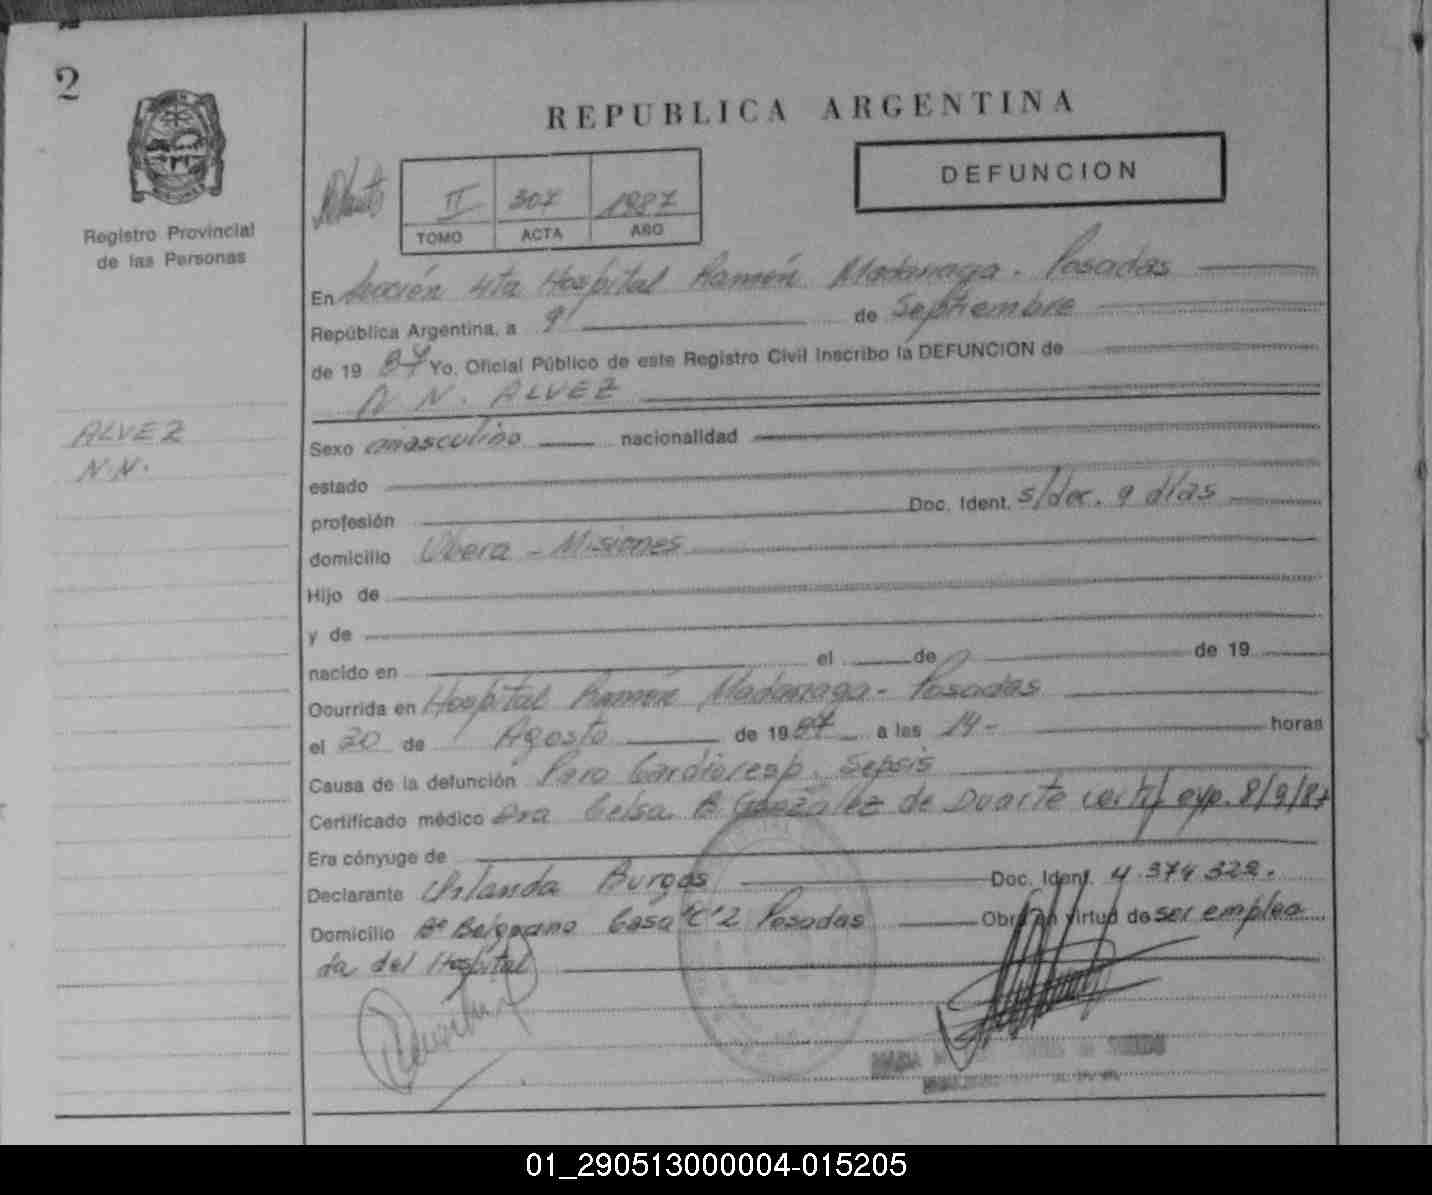 2
REPUBLICA ARGENTINA
DEFUNCION
II 307 1987
TOMO ACTA AÑO
Registro Provincial
de las Personas
En Sección 4ta Hospital Ramón Madariaga. Posadas
República Argentina, a 9 de Septiembre
de 19 87 Yo, Oficial Público de este Registro Civil Inscribo la DEFUNCION de
N. N. ALVEZ
ALVEZ
N.N.
Sexo masculino nacionalidad
estado
profesión Doc. Ident. s/doc. 9 días
domicilio Obera - Misiones
Hijo de
y de
nacido en el de de 19
Ocurrida en Hospital Ramón Madariaga - Posadas
el 20 de Agosto de 19 87 a las 14- horas
Causa de la defunción Paro Cardioresp. Sepsis
Certificado médico Dra Celsa B. González de Duarte certif exp. 8/9/87
Era cónyuge de
Declarante Burgos Doc. Ident. 4.374.322.
Domicilio Bº Belgrano Casa "C" 2 Posadas Obra en virtud de ser emplea
da del Hospital
01_290513000004-015205